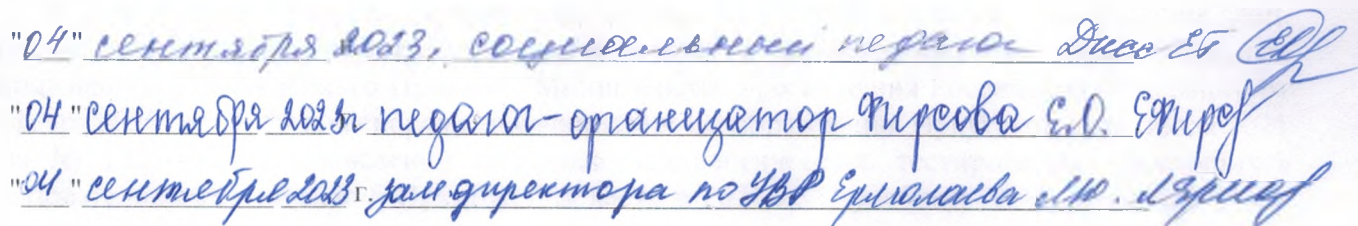 "04" сентября 2023, социальный педагог Дисс ЕГ
"04" сентября 2023г педагог-организатор Фирсова Е.О. ЕФирсо
"04" сентября 2023 г. зам директора по УВР Ермолаева Л.Ю.